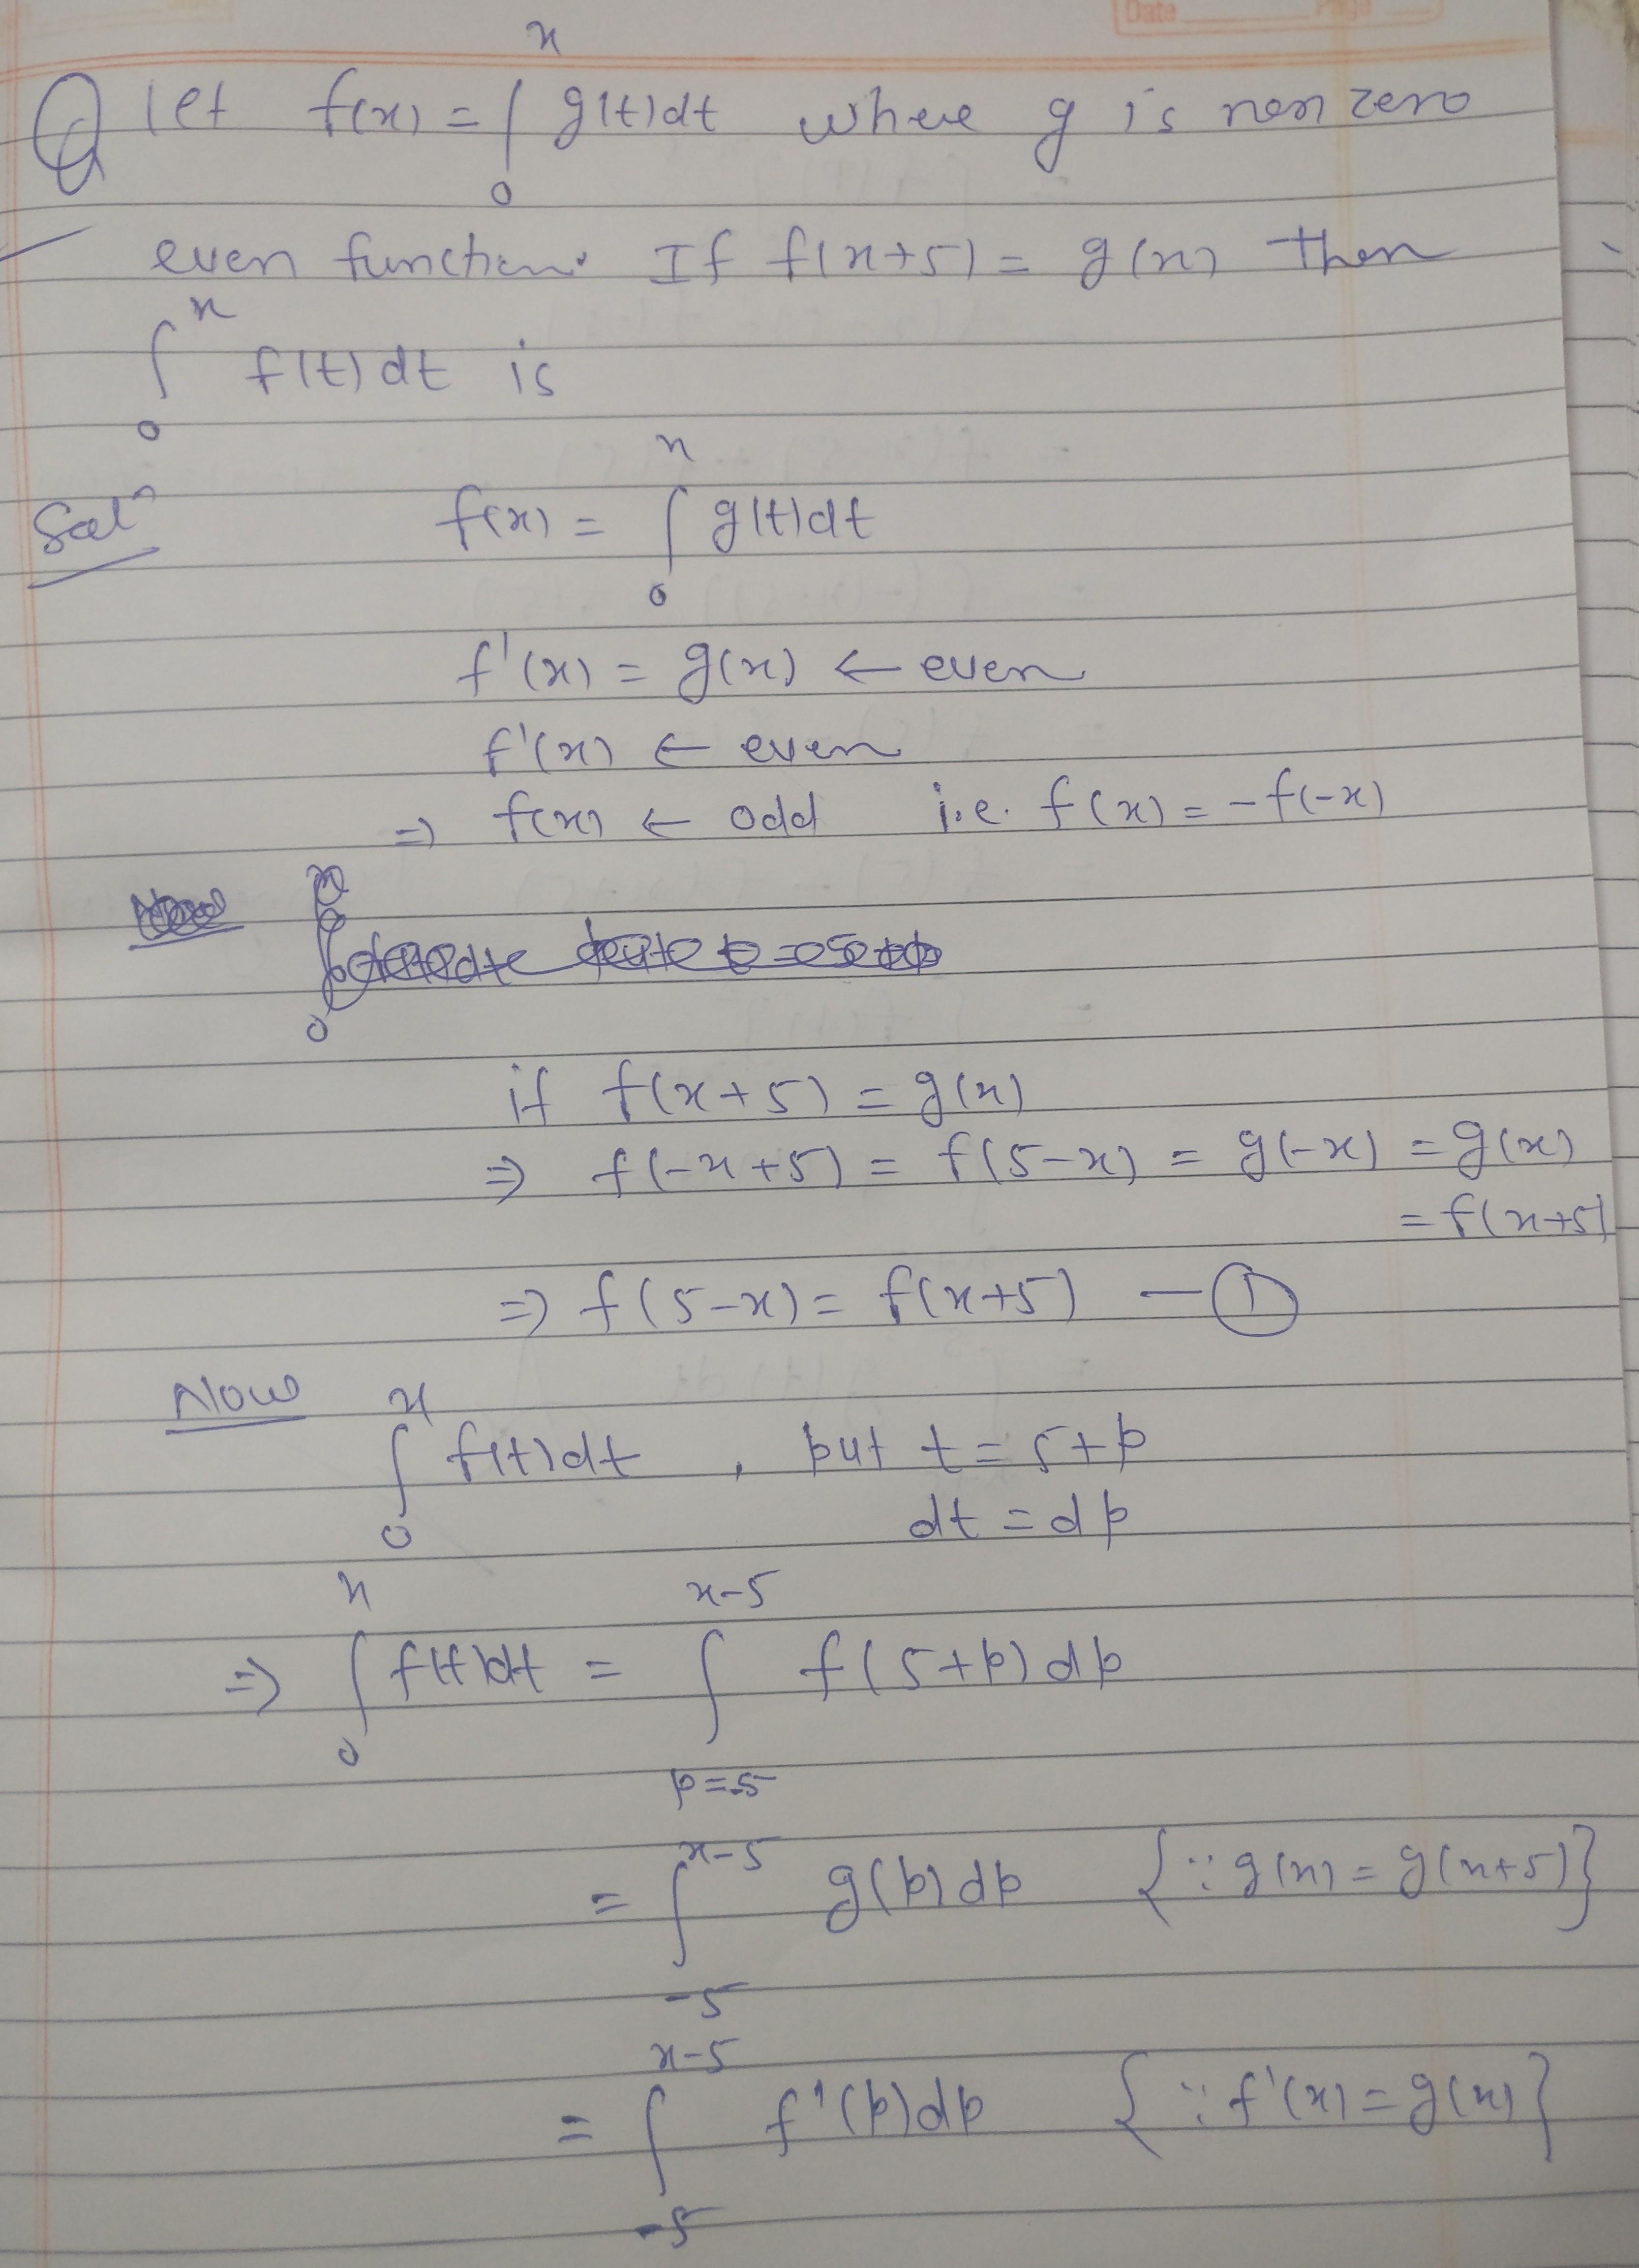 Date Page
Q let f(x) = ∫₀ˣ g(t)dt where g is non zero
even function. If f(x+5) = g(x) then
∫₀ˣ f(t)dt is
Solⁿ f(x) = ∫₀ˣ g(t)dt
f'(x) = g(x) ← even
f'(x) ← even
⇒ f(x) ← odd i.e. f(x) = -f(-x)
if f(x+5) = g(x)
⇒ f(-x+5) = f(5-x) = g(-x) = g(x)
= f(x+5)
⇒ f(5-x) = f(x+5) — ①
Now ∫₀ˣ f(t)dt , put t = 5+p
dt = dp
⇒ ∫₀ˣ f(t)dt = ∫_{p=-5}^{x-5} f(5+p)dp
= ∫_{-5}^{x-5} g(p)dp {∵ g(x) = g(x+5)}
= ∫_{-5}^{x-5} f'(p)dp {∵ f'(x) = g(x)}